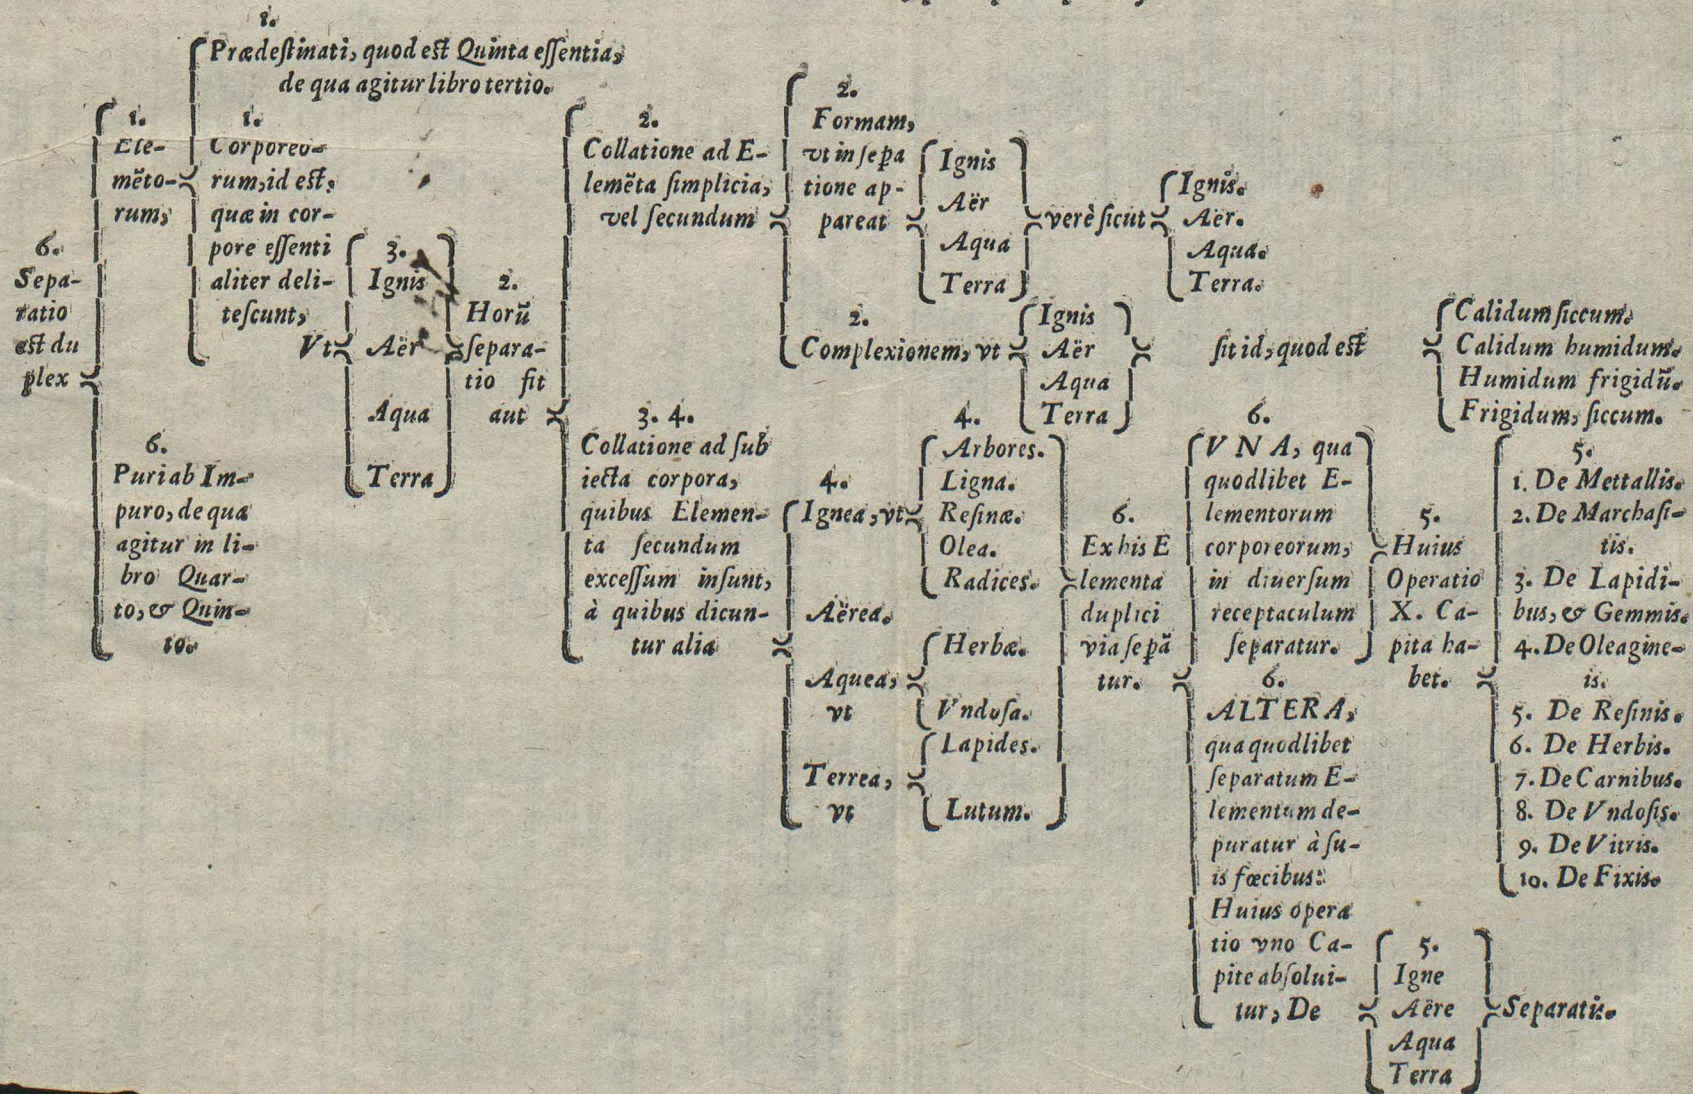 6.
Sepa-
ratio
est du
plex
1.
Ele-
mẽto-
rum,
6.
Puri ab Im-
puro, de qua
agitur in li-
bro Quar-
to, & Quin-
to.
1.
Prædestinati, quod est Quinta essentia,
de qua agitur libro tertio.
1.
Corporeo-
rum, id est,
quæ in cor-
pore essenti
aliter deli-
tescunt,
Vt
3.
Ignis
Aër
Aqua
Terra
2.
Horũ
separa-
tio fit
aut
2.
Collatione ad E-
lemẽta simplicia,
vel secundum
2.
Formam,
vt in sepa
tione ap-
pareat
Ignis
Aër
Aqua
Terra
verè sicut
Ignis.
Aër.
Aqua.
Terra.
2.
Complexionem, vt
Ignis
Aër
Aqua
Terra
sit id, quod est
Calidum siccum.
Calidum humidum.
Humidum frigidũ.
Frigidum, siccum.
3. 4.
Collatione ad sub
iecta corpora,
quibus Elemen-
ta secundum
excessum insunt,
à quibus dicun-
tur alia
4.
Ignea, vt
4.
Arbores.
Ligna.
Resinæ.
Olea.
Radices.
Aërea.
Aquea,
vt
Herbæ.
Vndosa.
Terrea,
vt
Lapides.
Lutum.
6.
Ex his E
lementa
duplici
via sepã
tur.
6.
VNA, qua
quodlibet E-
lementorum
corporeorum,
in diuersum
receptaculum
separatur.
5.
Huius
Operatio
X. Ca-
pita ha-
bet.
5.
1. De Mettallis.
2. De Marchasi-
tis.
3. De Lapidi-
bus, & Gemmis.
4. De Oleagine-
is.
5. De Resinis.
6. De Herbis.
7. De Carnibus.
8. De Vndosis.
9. De Vitris.
10. De Fixis.
6.
ALTERA,
qua quodlibet
separatum E-
lementum de-
puratur à su-
is fœcibus:
Huius opera
tio vno Ca-
pite absolui-
tur, De
5.
Igne
Aëre
Aqua
Terra
Separatis.